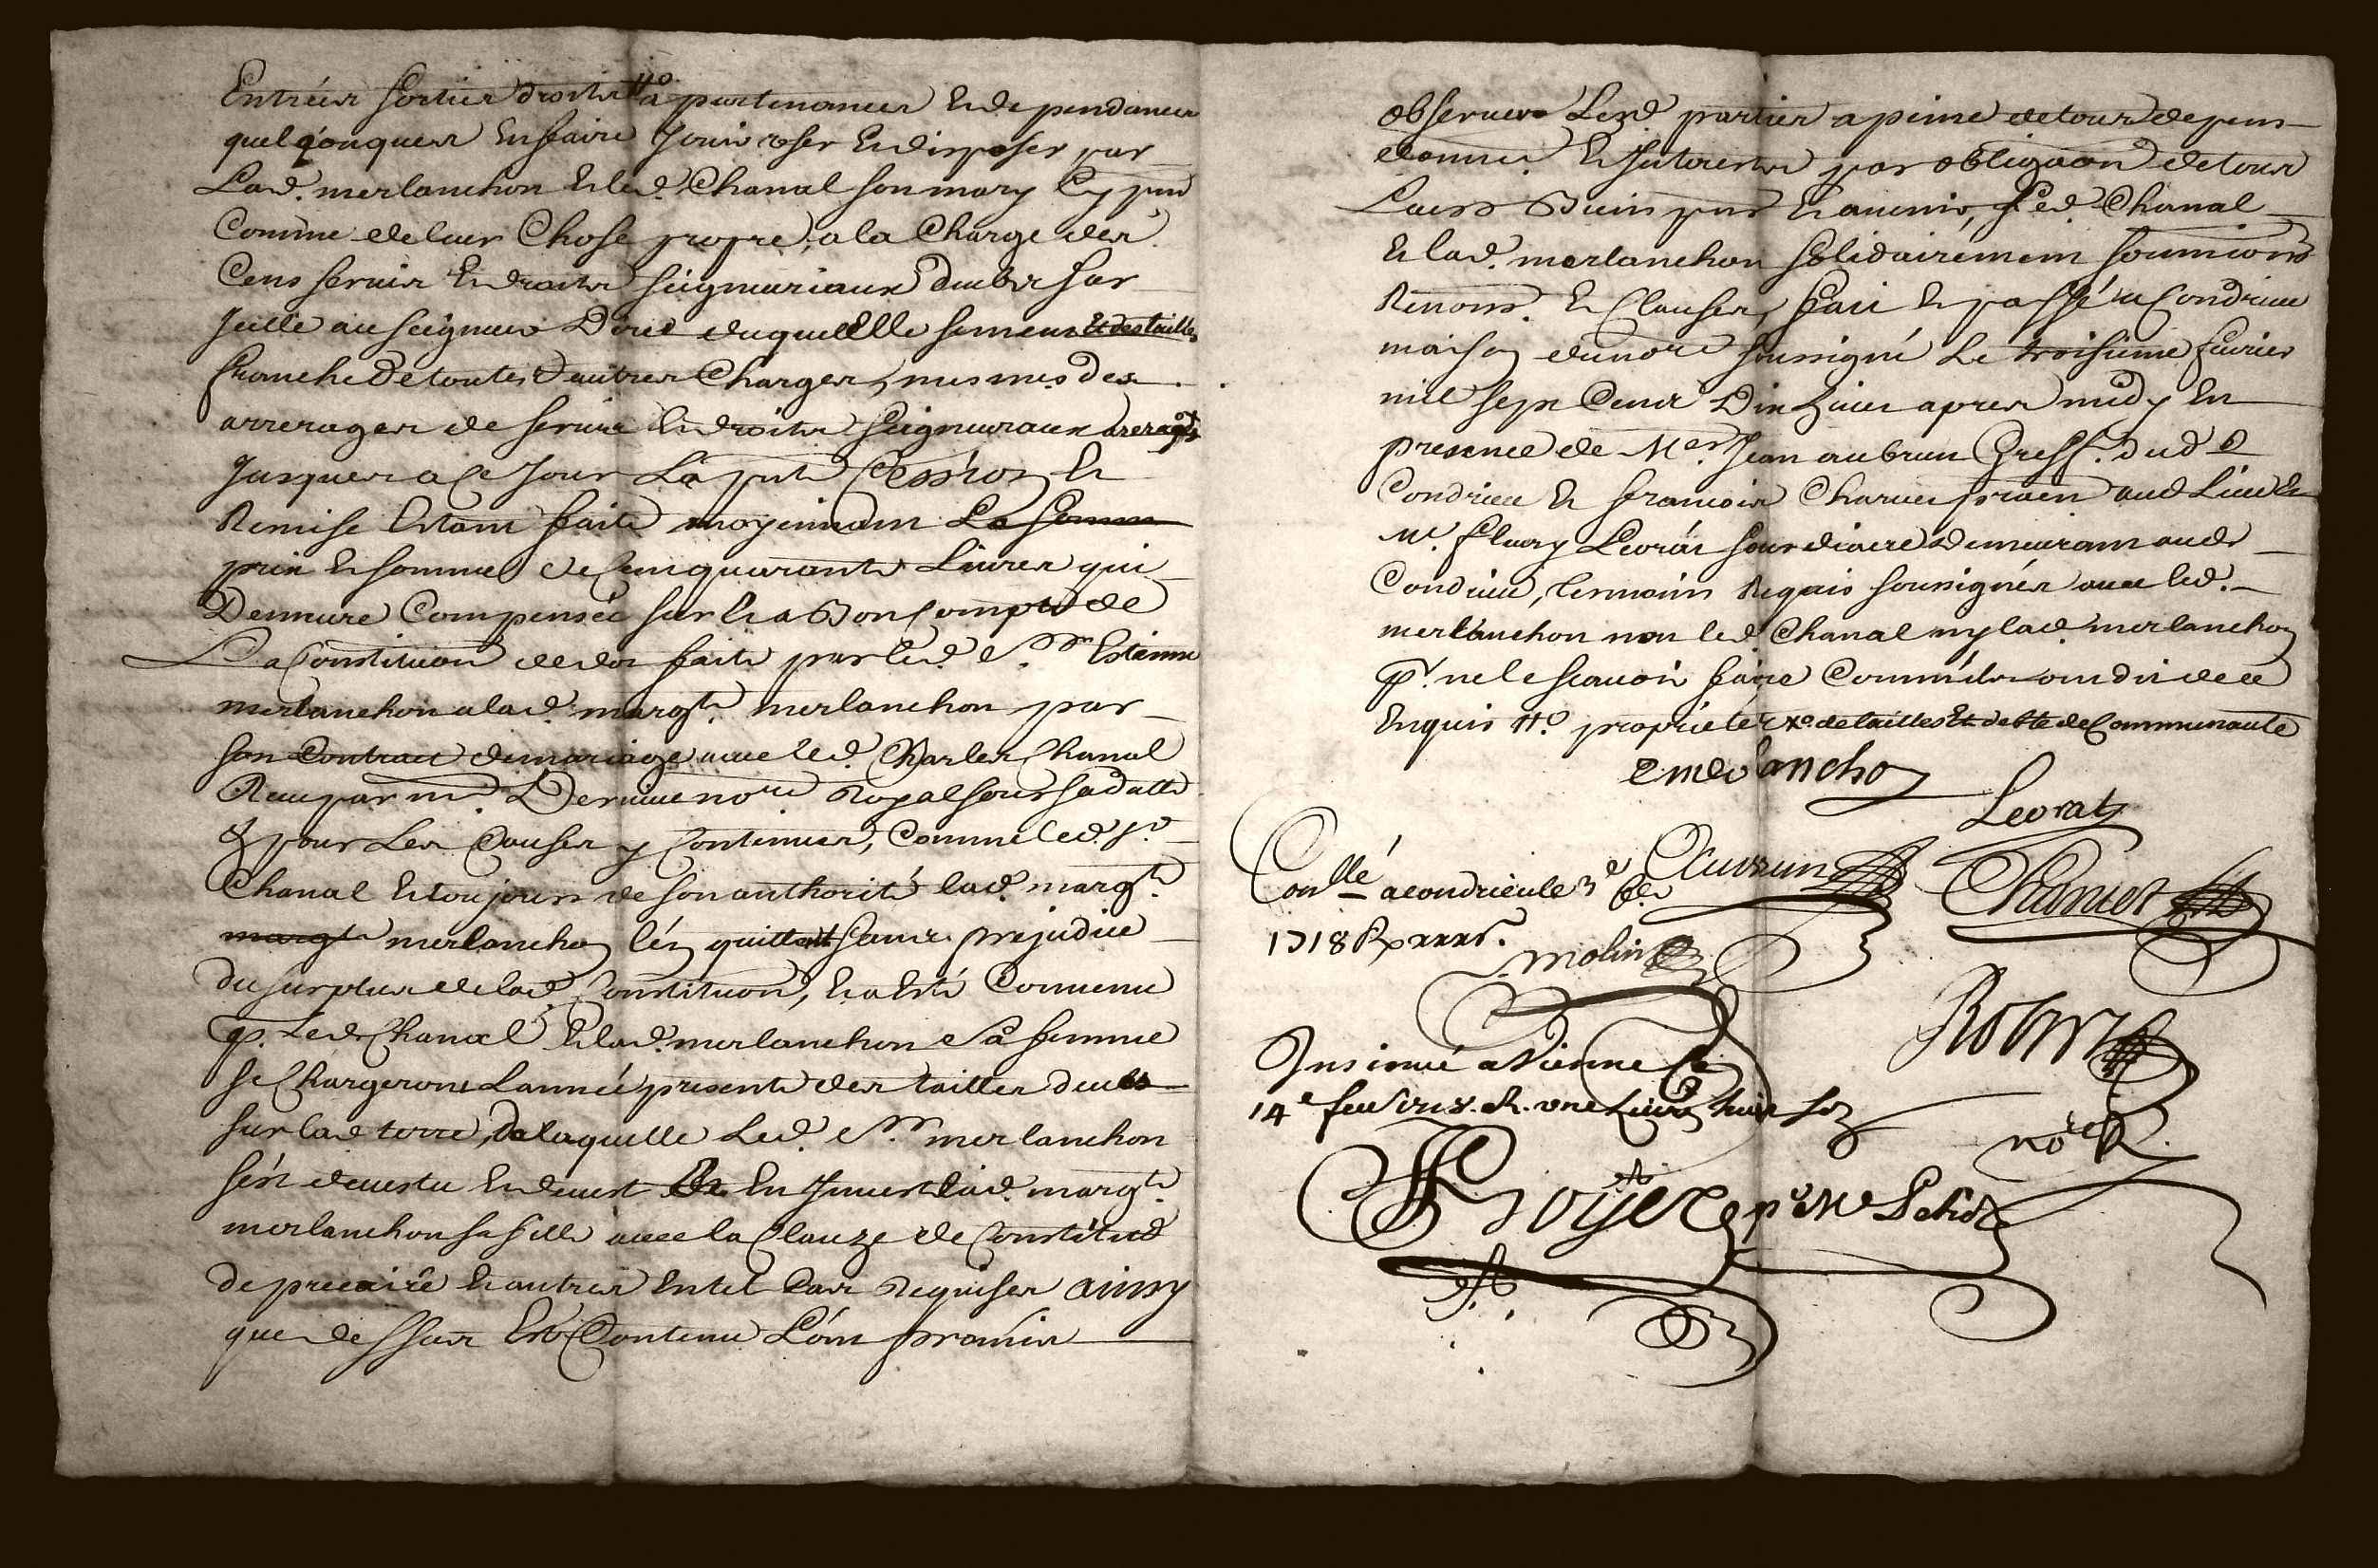 Entrées sorties droits #° apartenances Et dependances
quelqonques En faire Jouir user Et disposer par
Lad. merlanchon Et led. Chanal son mary Cy pnt
Comme de leur Chose propre, a la Charge des
Cens servis Et droits seigneuriaux deubs sur
Jcelle au seigneur Direct duquel Elle se meut Et des tailles
franche De toutes d'autres Charges, mesmes des
arrerages de servis Et droits seigneuraux arerages
Jusques a Ce Jour La pnte Cession Et
Remise Estant faite moyennant La somme
prix Et somme de Cent quarante Livres qui
Demeure Compensée sur Et a Bon Compte de
La Constituon de dot faite par led. Sr. Estienne
merlanchon a lad. margte. merlanchon par
son Contract de mariage avec led. Charles Chanal
Receu par me. nore Royal sous sa datte
& pour Les Causes y Contenues, Comme led. sr.
Chanal Et toujours de son authorité lad. margte.
margte merlanchon l'en quittent sans prejudice
du surplus de lad. Constituon, Et a Esté Convenu
q. Led. Chanal Et lad. merlanchon Sa femme
se Chargeront L'année presente des tailles deues
sur lad terre, De laquelle Led. Sr. merlanchon
s'est devestu En devest Et En Jnvest lad. margte.
merlanchon sa fille avec la Clauze de Constitut
de precaire Et autres En tel Cas Requises ainsy
que dessus Est Contenu L'ont promis
observer Lesd parties a peine de tous depens
domes. Et Jnterests par obligaon de tous
Leurs Biens pnts Et avenir, Led. Chanal
Et lad. merlanchon solidairement soumions
Renons. Et Clauses, fait Et passé a Condrieu
maison de nore soussigné Le troisieme fevrier
mil sept Cents Dix huit apres midy En
presence de Mes. Jean aubrun Greff. dud
Condrieu Et francois Charvet praen aud Lieu Et
Me. fleury Levrat sousdiacre Demeurant aud
Condrieu, temoins Requis soussignés avec led.
merlanchon non led. Chanal ny lad. merlanchon
pr. ne le scavoir faire Comme ils ont dit de ce
Enquis #° proprietés x° de tailles Et debte de Communauté
E merlanchon
Levrat
Conllé a condrieu le 3e fer
Auvrun
Charvet
1718 R xxxx s.
molin
Robert
nore R
Insinué a Vienne le
14e feu 1718. R. une Livre huit sols
Royer pr Me